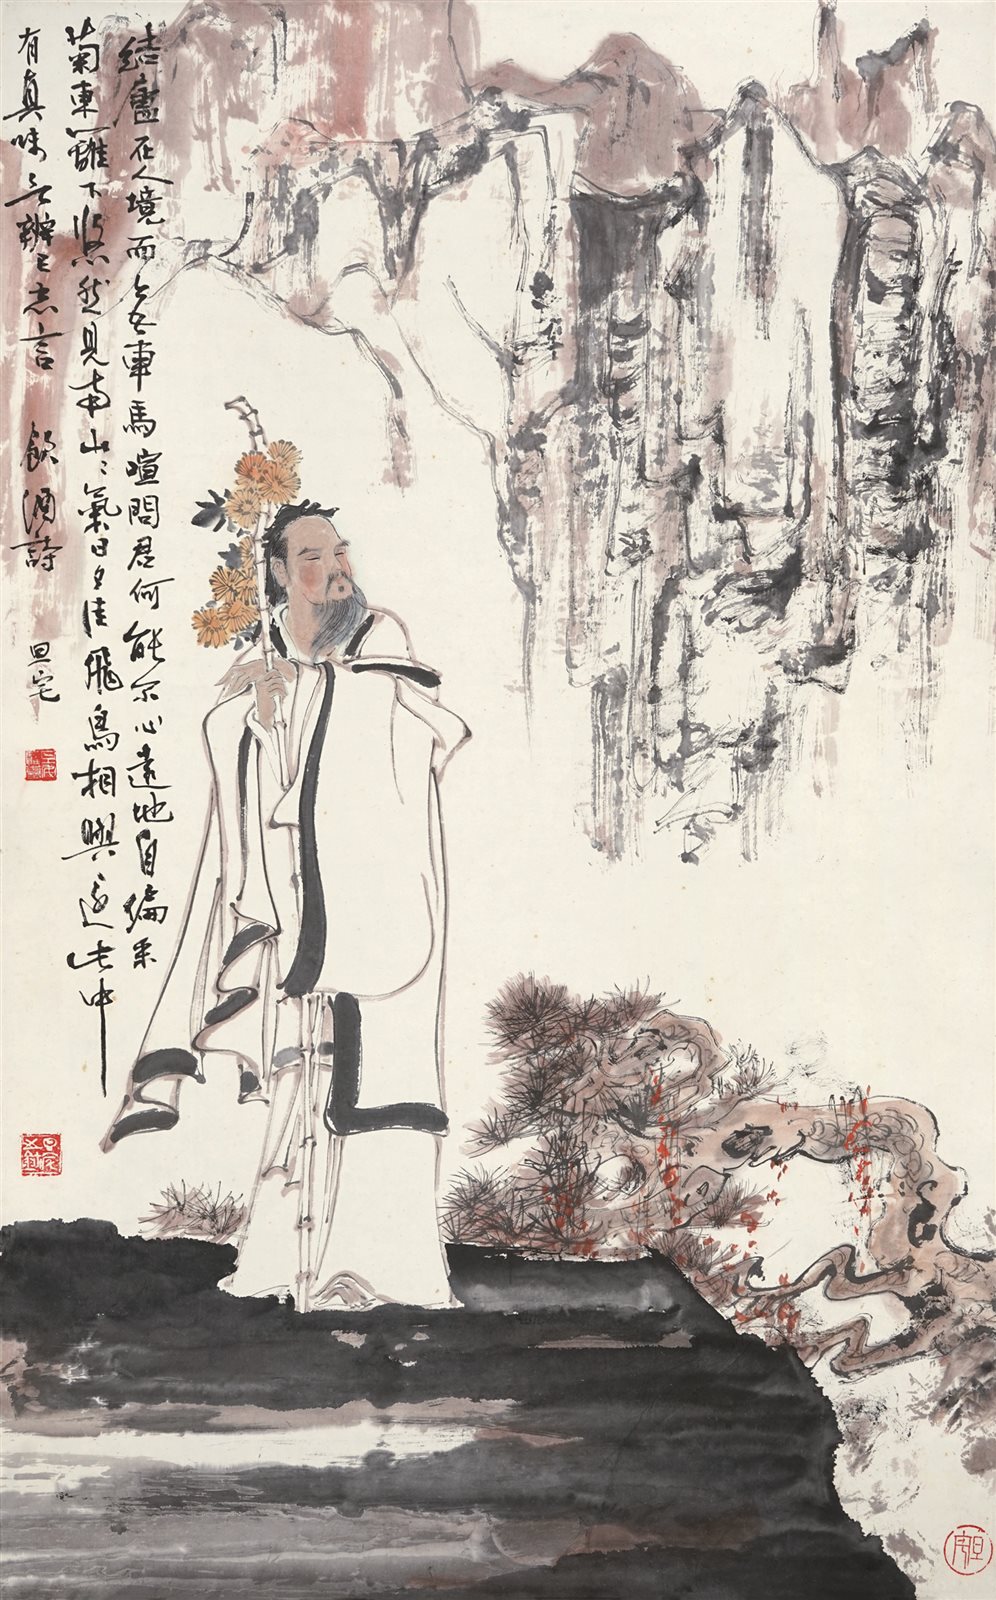 結廬在人境而无車馬喧問君何能尔心遠地自偏采
菊東籬下悠然見南山〻氣日夕佳飛鳥相與還此中
有真味辨已忘言 飲酒詩
旦宅